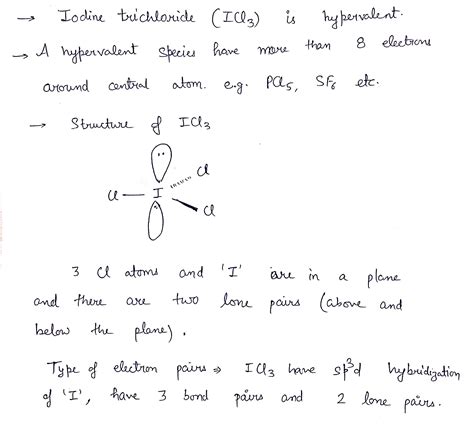 → Iodine trichloride (ICl3) is hypervalent.
→ A hypervalent species have more than 8 electrons
around central atom. e.g. PCl5, SF6 etc.
→ Structure of ICl3
Cl
Cl — I
Cl
3 Cl atoms and 'I' are in a plane
and there are two lone pairs (above and
below the plane).
Type of electron pairs ⇒ ICl3 have sp3d hybridization
of 'I', have 3 bond pairs and 2 lone pairs.